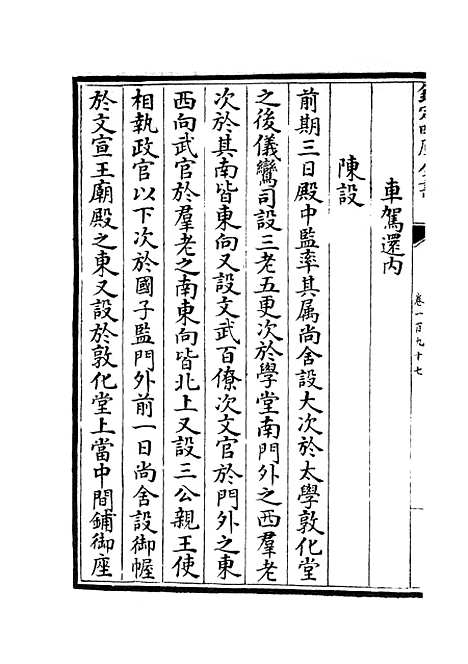 欽定四庫全書
卷一百九十七
車駕還内
陳設
前期三日殿中監率其属尚舍設大次於太學敦化堂
之後儀鸞司設三老五更次於學堂南門外之西羣老
次於其南皆東向又設文武百僚次文官於門外之東
西向武官於羣老之南東向皆北上又設三公親王使
相執政官以下次於國子監門外前一日尚舍設御幄
於文宣王廟殿之東又設於敦化堂上當中間鋪御座